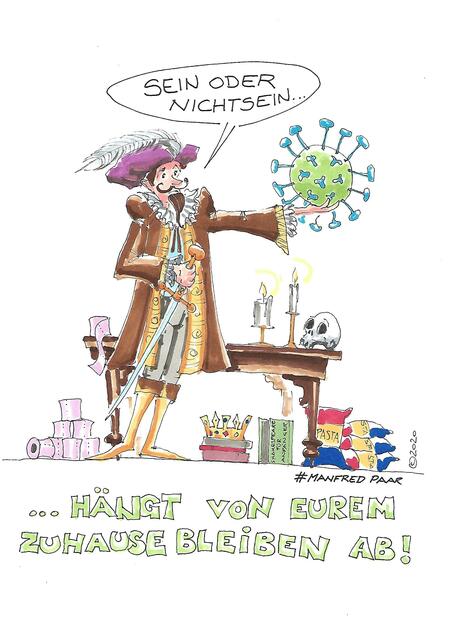 SEIN ODER
NICHTSEIN...
SHAKESPEARE
FÜR
ANFÄNGER
PASTA
©2020
#MANFRED PAAR
...HÄNGT VON EUREM
ZUHAUSE BLEIBEN AB!